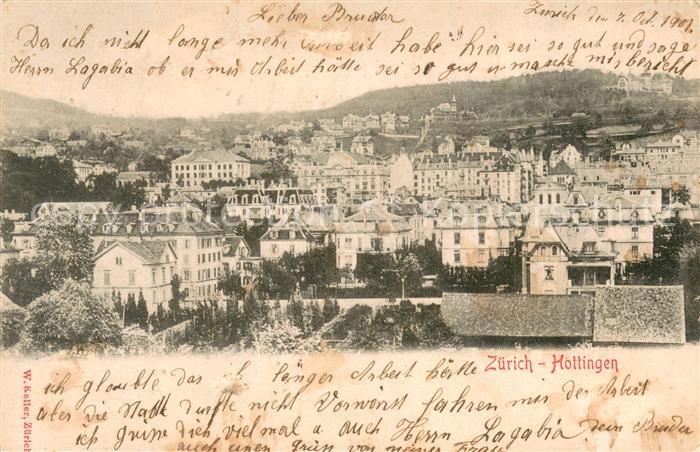 Zürich den 7. Oct. 1901.
Lieber Bruder
Da ich nicht lange mehr arweit habe hier sei so gut und sage
Herrn Lagabia ob er mir Arbeit hätte sei so gut er masht mir bericht
Zürich - Hottingen
ich glaubte das ich länger Arbeit hätte
aber die Stadt durfte nicht Vorwönst fahren mir der Arbeit
ich grüsse dich vielmal u auch Herrn Lagabia dein Bruder
auch einen Grüss von meiner Frau
W. Keller, Zürich